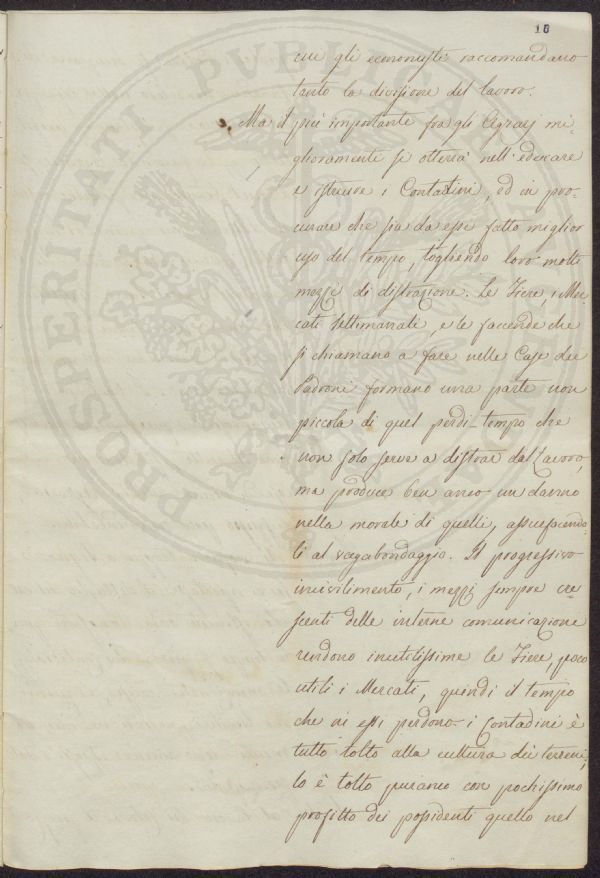 18
cui gli economisti raccomandano
tanto la divisione del lavoro.
Ma il più importante fra gli Agrarj mi-
glioramenti si otterrà nell'educare
e istruire i Contadini, ed in pro-
curare che sia da essi fatto miglior
uso del tempo, togliendo loro molti
mezzi di distrazione. Le Fiere, i Mer-
cati settimanali, e le faccende che
si chiamano a fare nelle Case dei
Padroni formano una parte non
piccola di quel perdi-tempo che
non solo serve a distrar dal Lavoro,
ma produce ben anco un danno
nella morale di quelli, assuefacendo-
li al vagabondaggio. Il progressivo
incivilimento, i mezzi sempre cre-
scenti delle interne comunicazione
rendono inutilissime le Fiere, poco
utili i Mercati, quindi il tempo
che in essi perdono i Contadini è
tutto tolto alla cultura dei terreni,
lo è tolto puranco con pochissimo
profitto dei possidenti quello nel
PROSPERITATI PUBLICAE